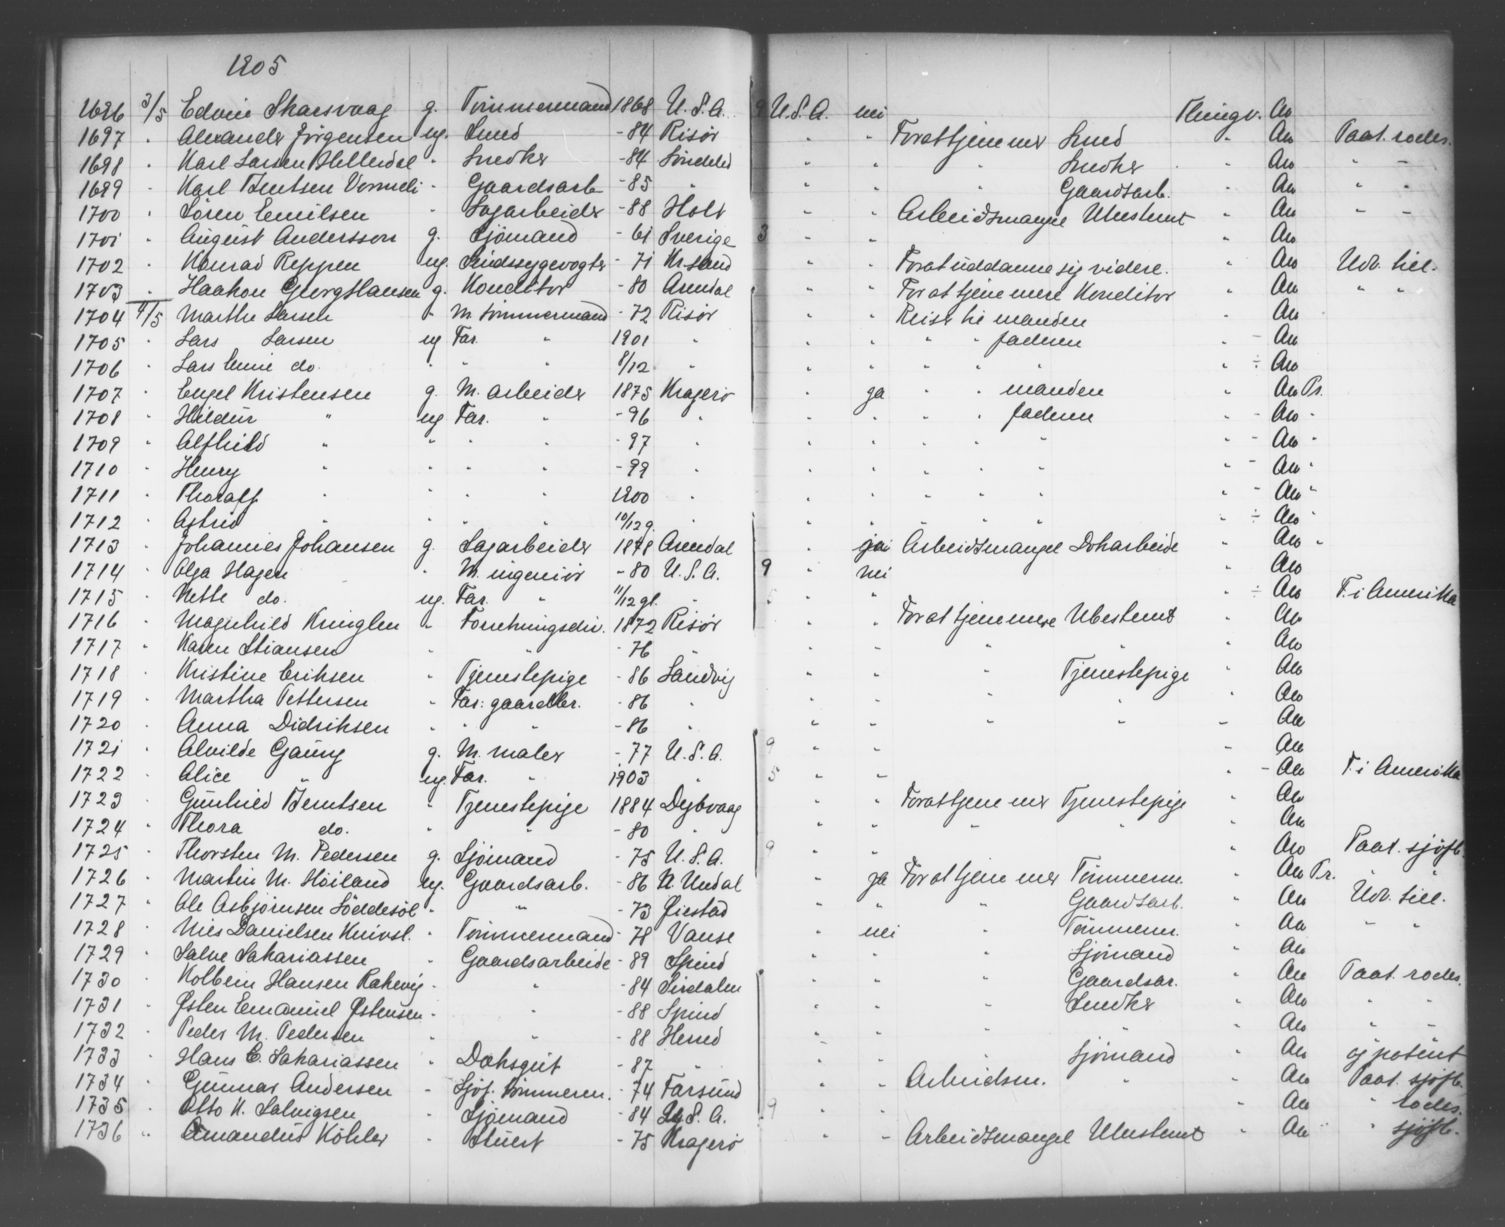 1905
1696 3/5 Edvin Skarsvaag g. Tømmermand 1868 U.S.A. 9 U.S.A. nei Flingv. Alo
1697 " Alexander Jørgensen ug. Smed -84 Risør " " For at tjene mer Smed " Alo Paat. rodes.
1698 " Karl Larsen Hellerdal " Snedker -84 Søndeled " " " Snedker " Alo " "
1699 " Karl Berntsen " Gaardsarb. -85 " " " " Gaardsarb. " Alo " "
1700 " Søren Emilsen " Sagarbeider -88 Holt " " Arbeidsmangel Ubestemt " Alo " "
1701 " August Andersson g. Sjömand -61 Sverige 3 " " " Alo
1702 " Konrad Reppen ug. Sindssygevogter -71 Kr.sand " " For at uddanne sig videre. " Alo Udv. till.
1703 " Haakon Georg Hansen g. Konditor -80 Arendal " " For at tjene mere Konditor " Alo " "
1704 4/5 Marthe Larsen " M. tømmermand -72 Risør " " Reise til manden " Alo
1705 " Lars Larsen ug Far. " 1901 " " " " " " faderen " - Alo
1706 " Lars Emil do. " " " 8/12 " " " " " " " " ÷ Alo
1707 " Engel Kristensen g. M. arbeider 1875 Kragerø " ja " " manden " Alo Pr.
1708 " Hildur " ug Far. " -96 " " " " " faderen " - Alo "
1709 " Alfhild " " " " -97 " " " " " " " - Alo "
1710 " Henry " " " " -99 " " " " " " " - Alo "
1711 " Thoralf " " " " 1900 " " " " " " " - Alo "
1712 " Astrid " " " " 10/12 g. " " " " " " " ÷ Alo "
1713 " Johannes Johansen g. Sagarbeider 1878 Arendal " ja Arbeidsmangel Dokarbeide " Alo "
1714 " Olga Hagen " M. ingeniør -80 U.S.A. 9 " nei Alo
1715 " Nette do. ug. Far. " 11/12 gl. " 5 " " " ÷ Alo F. i Amerika
1716 " Magnhild Kringlen " Forretningsdrv. 1872 Risør " " For at tjene mere Ubestemt " Alo
1717 " Karen Stiansen " " -76 " " " " " " Alo
1718 " Kristine Eriksen " Tjenestepige -86 Landvig " " " Tjenestepige " Alo
1719 " Martha Pettersen " Far: gaardbr. -86 " " " " " " Alo
1720 " Anna Didriksen " " -86 " " " " " " Alo
1721 " Alvilde Gauny g. M. maler -77 U.S.A. 9 " " " Alo
1722 " Alice " ug. Far. " 1903 " 5 " " " - Alo F. i Amerika
1723 " Gunhild Berntsen " Tjenestepige 1884 Dybvaag " " For at tjene mer Tjenestepige " Alo
1724 " Thora do. " " -80 " " " " " " Alo
1725 " Thorsten M. Pedersen g. Sjömand -75 U.S.A. 9 " " " Alo Paat. sjøfb.
1726 " Martin M. Høiland ug. Gaardsarb. -86 N. Undal " ja For at tjene mer Tømmerm. " Alo Pr. " "
1727 " Ole Asbjørnsen " " -73 Øiestad " " " Gaardsarb. " Alo Udv. till.
1728 " Nils Danielsen " Tømmermand -78 Vanse " nei " Tømmerm. " Alo " "
1729 " Salve Sakariassen " Gaardsarbeide -89 Spind " " " Sjömand " Alo
1730 " Kolbein Hansen Rakevig " " -84 Sirdalen " " " Gaardsar. " Alo Paat. rodes.
1731 " Østen Emanuel Østensen " " -88 Spind " " " Snedker " Alo " "
1732 " Peder M. Pedersen " " -88 Herred " " " " " Alo " "
1733 " Hans C. Sakariassen " Doksgut -87 " " " " Sjömand " Alo ej patent
1734 " Gunnar Andersen " Sjøf. tømmerm. -74 Farsund " " Arbeidsm. " " Alo Paat. sjøfb.
1735 " Otto K. Salvigsen " Sjömand -84 U.S.A. 9 " " " Alo " rodes.
1736 " Amandus Köhler " Stuert -75 Kragerø " " Arbeidsmangel Ubestemt " Alo " " sjøfb.